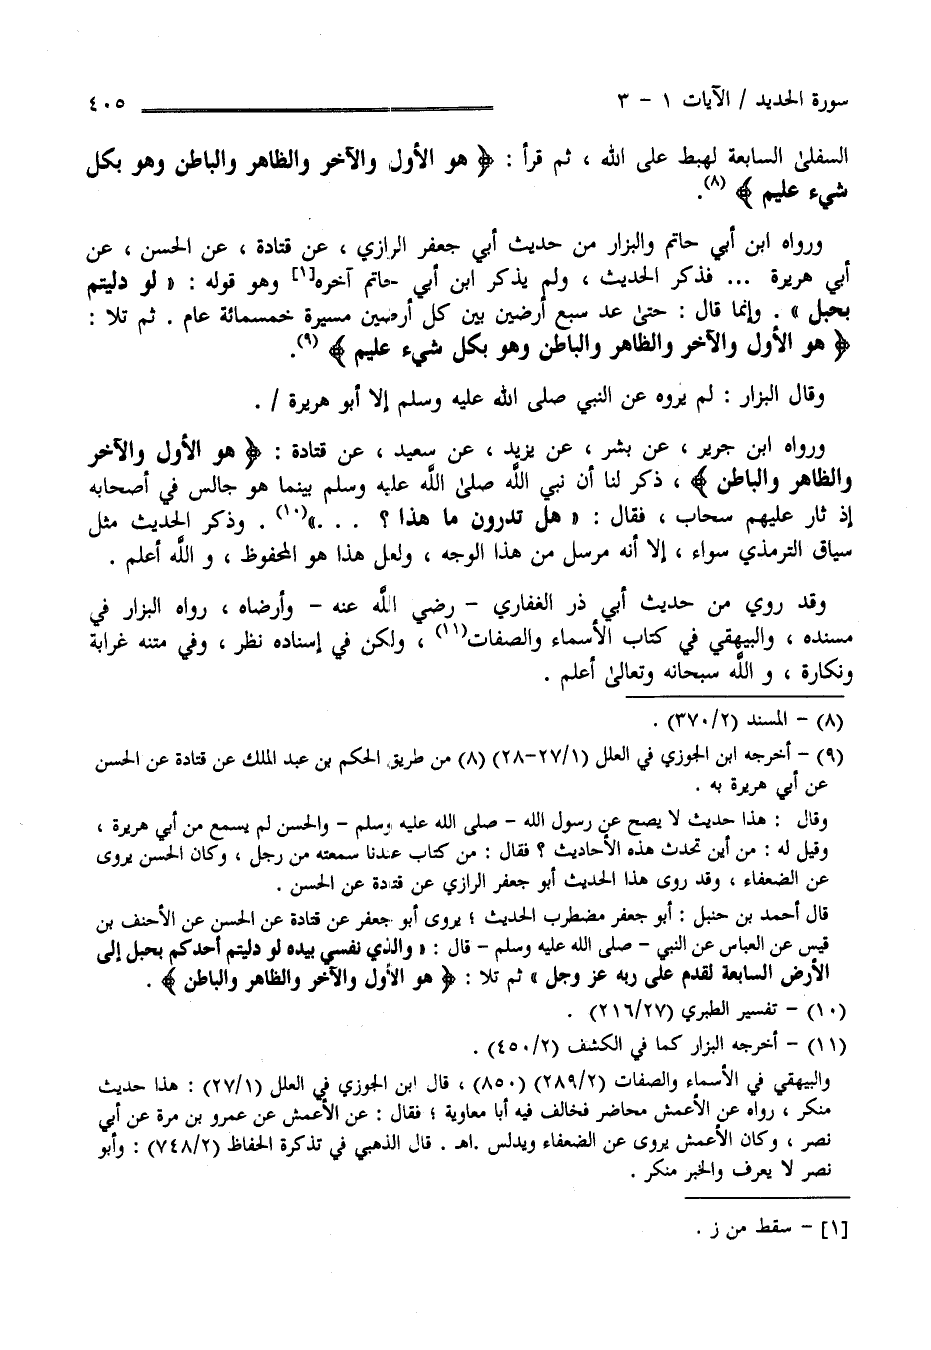 سورة الحديد / الآيات ١ - ٣
٤٠٥
السفلىٰ السابعة لهبط على الله ، ثم قرأ : ﴿ هو الأول والآخر والظاهر والباطن وهو بكل
شيء عليم ﴾ (٨).
ورواه ابن أبي حاتم والبزار من حديث أبي جعفر الرازي ، عن قتادة ، عن الحسن ، عن
أبي هريرة ... فذكر الحديث ، ولم يذكر ابن أبي حاتم آخره[١] وهو قوله : « لو دليتم
بحبل » . وإنما قال : حتىٰ عد سبع أرضين بين كل أرضين مسيرة خمسمائة عام . ثم تلا :
﴿ هو الأول والآخر والظاهر والباطن وهو بكل شيء عليم ﴾ (٩).
وقال البزار : لم يروه عن النبي صلى الله عليه وسلم إلا أبو هريرة / .
ورواه ابن جرير ، عن بشر ، عن يزيد ، عن سعيد ، عن قتادة : ﴿ هو الأول والآخر
والظاهر والباطن ﴾ ، ذكر لنا أن نبي اللَّه صلىٰ اللَّه عليه وسلم بينما هو جالس في أصحابه
إذ ثار عليهم سحاب ، فقال : « هل تدرون ما هذا ؟ . . .»(١٠) . وذكر الحديث مثل
سياق الترمذي سواء ، إلا أنه مرسل من هذا الوجه ، ولعل هذا هو المحفوظ ، و اللَّه أعلم .
وقد روي من حديث أبي ذر الغفاري - رضي اللَّه عنه - وأرضاه ، رواه البزار في
مسنده ، والبيهقي في كتاب الأسماء والصفات(١١) ، ولكن في إسناده نظر ، وفي متنه غرابة
ونكارة ، و اللَّه سبحانه وتعالىٰ أعلم .
(٨) - المسند (٣٧٠/٢) .
(٩) - أخرجه ابن الجوزي في العلل (٢٧/١-٢٨) (٨) من طريق الحكم بن عبد الملك عن قتادة عن الحسن
عن أبي هريرة به .
وقال : هذا حديث لا يصح عن رسول الله - صلى الله عليه وسلم - والحسن لم يسمع من أبي هريرة ،
وقيل له : من أين تحدث هذه الأحاديث ؟ فقال : من كتاب عندنا سمعته من رجل ، وكان الحسن يروى
عن الضعفاء ، وقد روى هذا الحديث أبو جعفر الرازي عن قتادة عن الحسن .
قال أحمد بن حنبل : أبو جعفر مضطرب الحديث ؛ يروى أبو جعفر عن قتادة عن الحسن عن الأحنف بن
قيس عن العباس عن النبي - صلى الله عليه وسلم - قال : « والذي نفسي بيده لو دليتم أحدكم بحبل إلى
الأرض السابعة لقدم على ربه عز وجل » ثم تلا : ﴿ هو الأول والآخر والظاهر والباطن ﴾ .
(١٠) - تفسير الطبري (٢١٦/٢٧) .
(١١) - أخرجه البزار كما في الكشف (٤٥٠/٢) .
والبيهقي في الأسماء والصفات (٢٨٩/٢) (٨٥٠) ، قال ابن الجوزي في العلل (٢٧/١) : هذا حديث
منكر ، رواه عن الأعمش محاضر فخالف فيه أبا معاوية ؛ فقال : عن الأعمش عن عمرو بن مرة عن أبي
نصر ، وكان الأعمش يروى عن الضعفاء ويدلس .اهـ. قال الذهبي في تذكرة الحفاظ (٧٤٨/٢) : وأبو
نصر لا يعرف والخبر منكر .
[١] - سقط من ز .